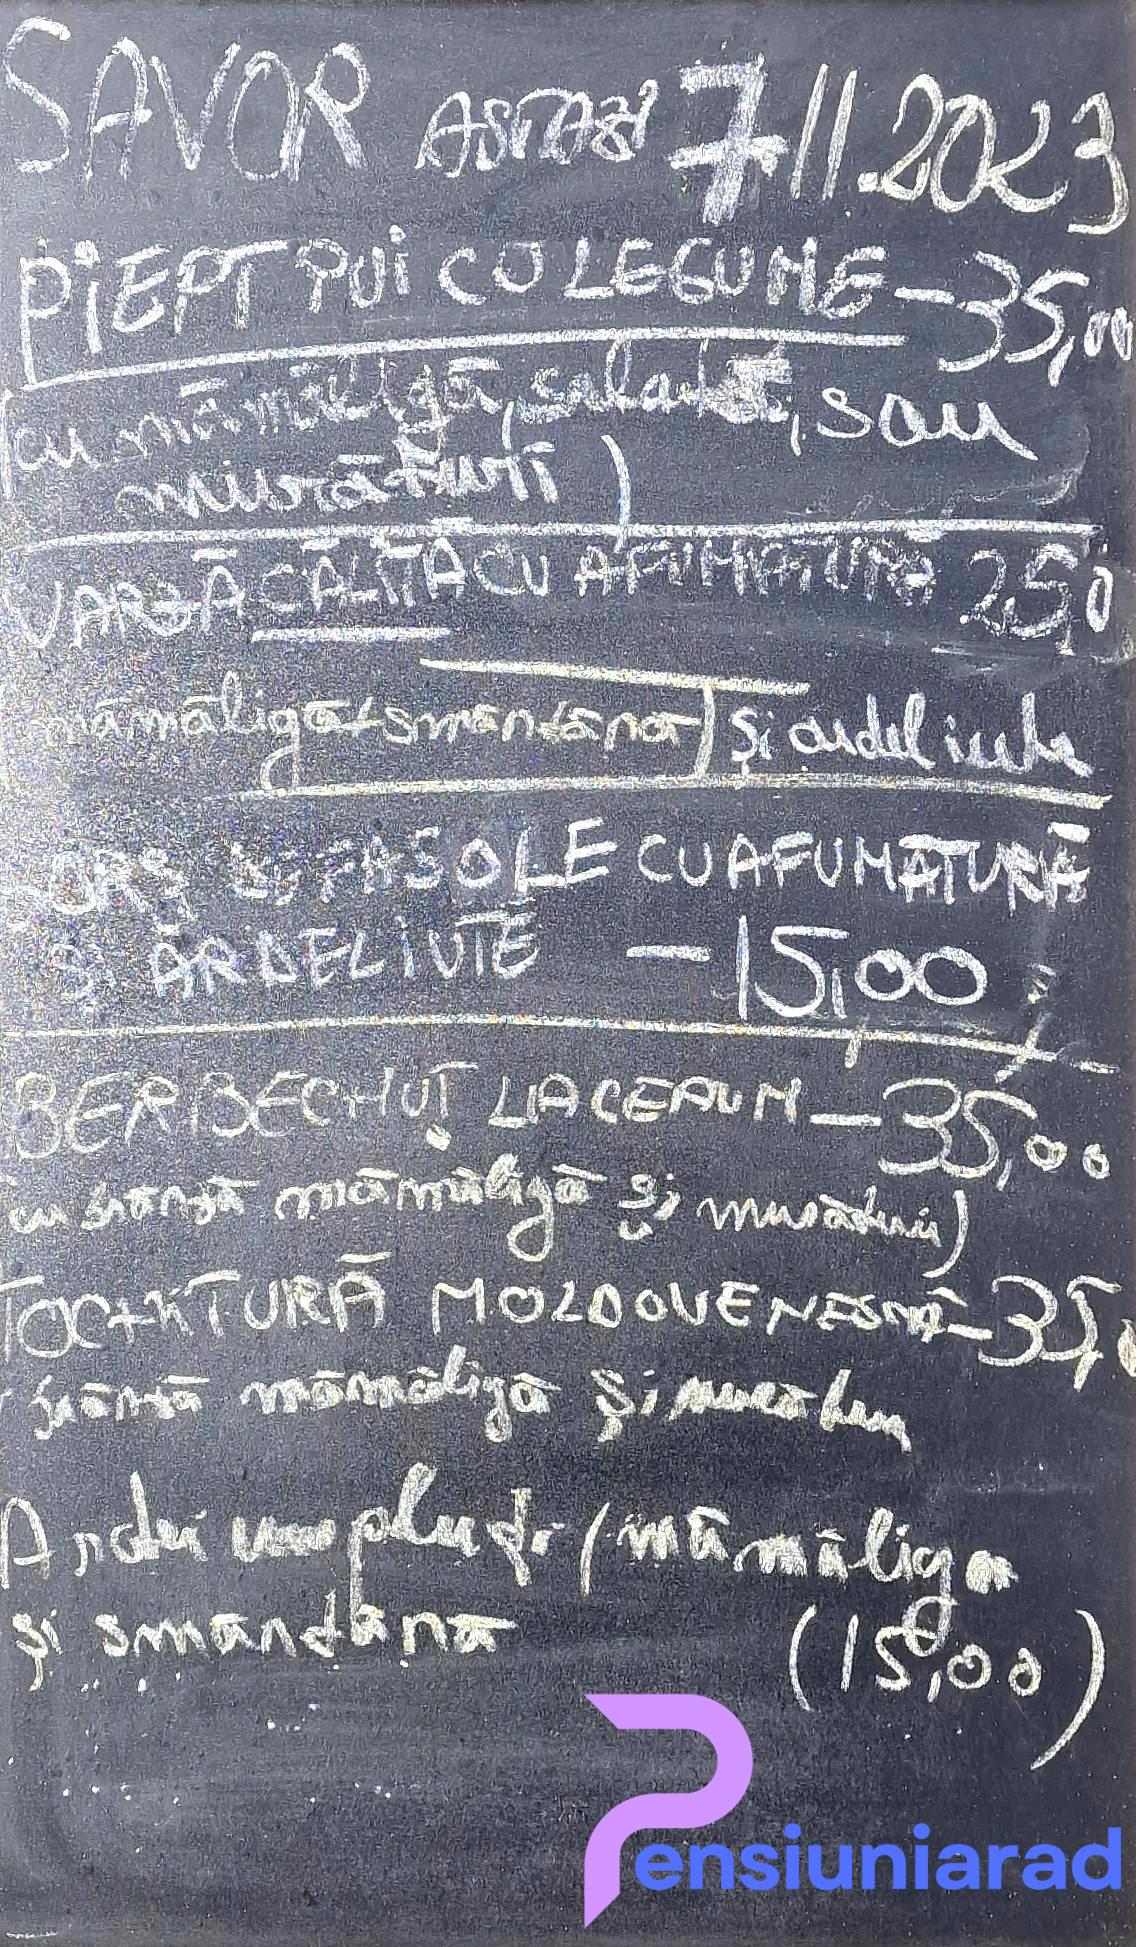 SAVOR ASTĂZI 7.11.2023
PIEPT PUI CU LEGUME - 35,00
(cu mămăligă, salată, sau
murături)
VARZĂ CĂLITĂ CU AFUMĂTURĂ 25,0
mămăligă+smântână) și ardei iute
BORȘ DE FASOLE CU AFUMĂTURĂ
ȘI ARDEI IUTE - 15,00
BERBECHUȚ LA CEAUN - 35,00
cu brânză mămăligă și murături)
TOCHITURĂ MOLDOVENEASCĂ - 35,0
brânză mămăligă și
Ardei umpluți (mămăliga
și smântână (15,00)
Pensiuniarad